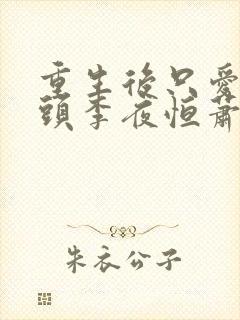 重生後只愛
頭李夜恒蕭
朱衣公子